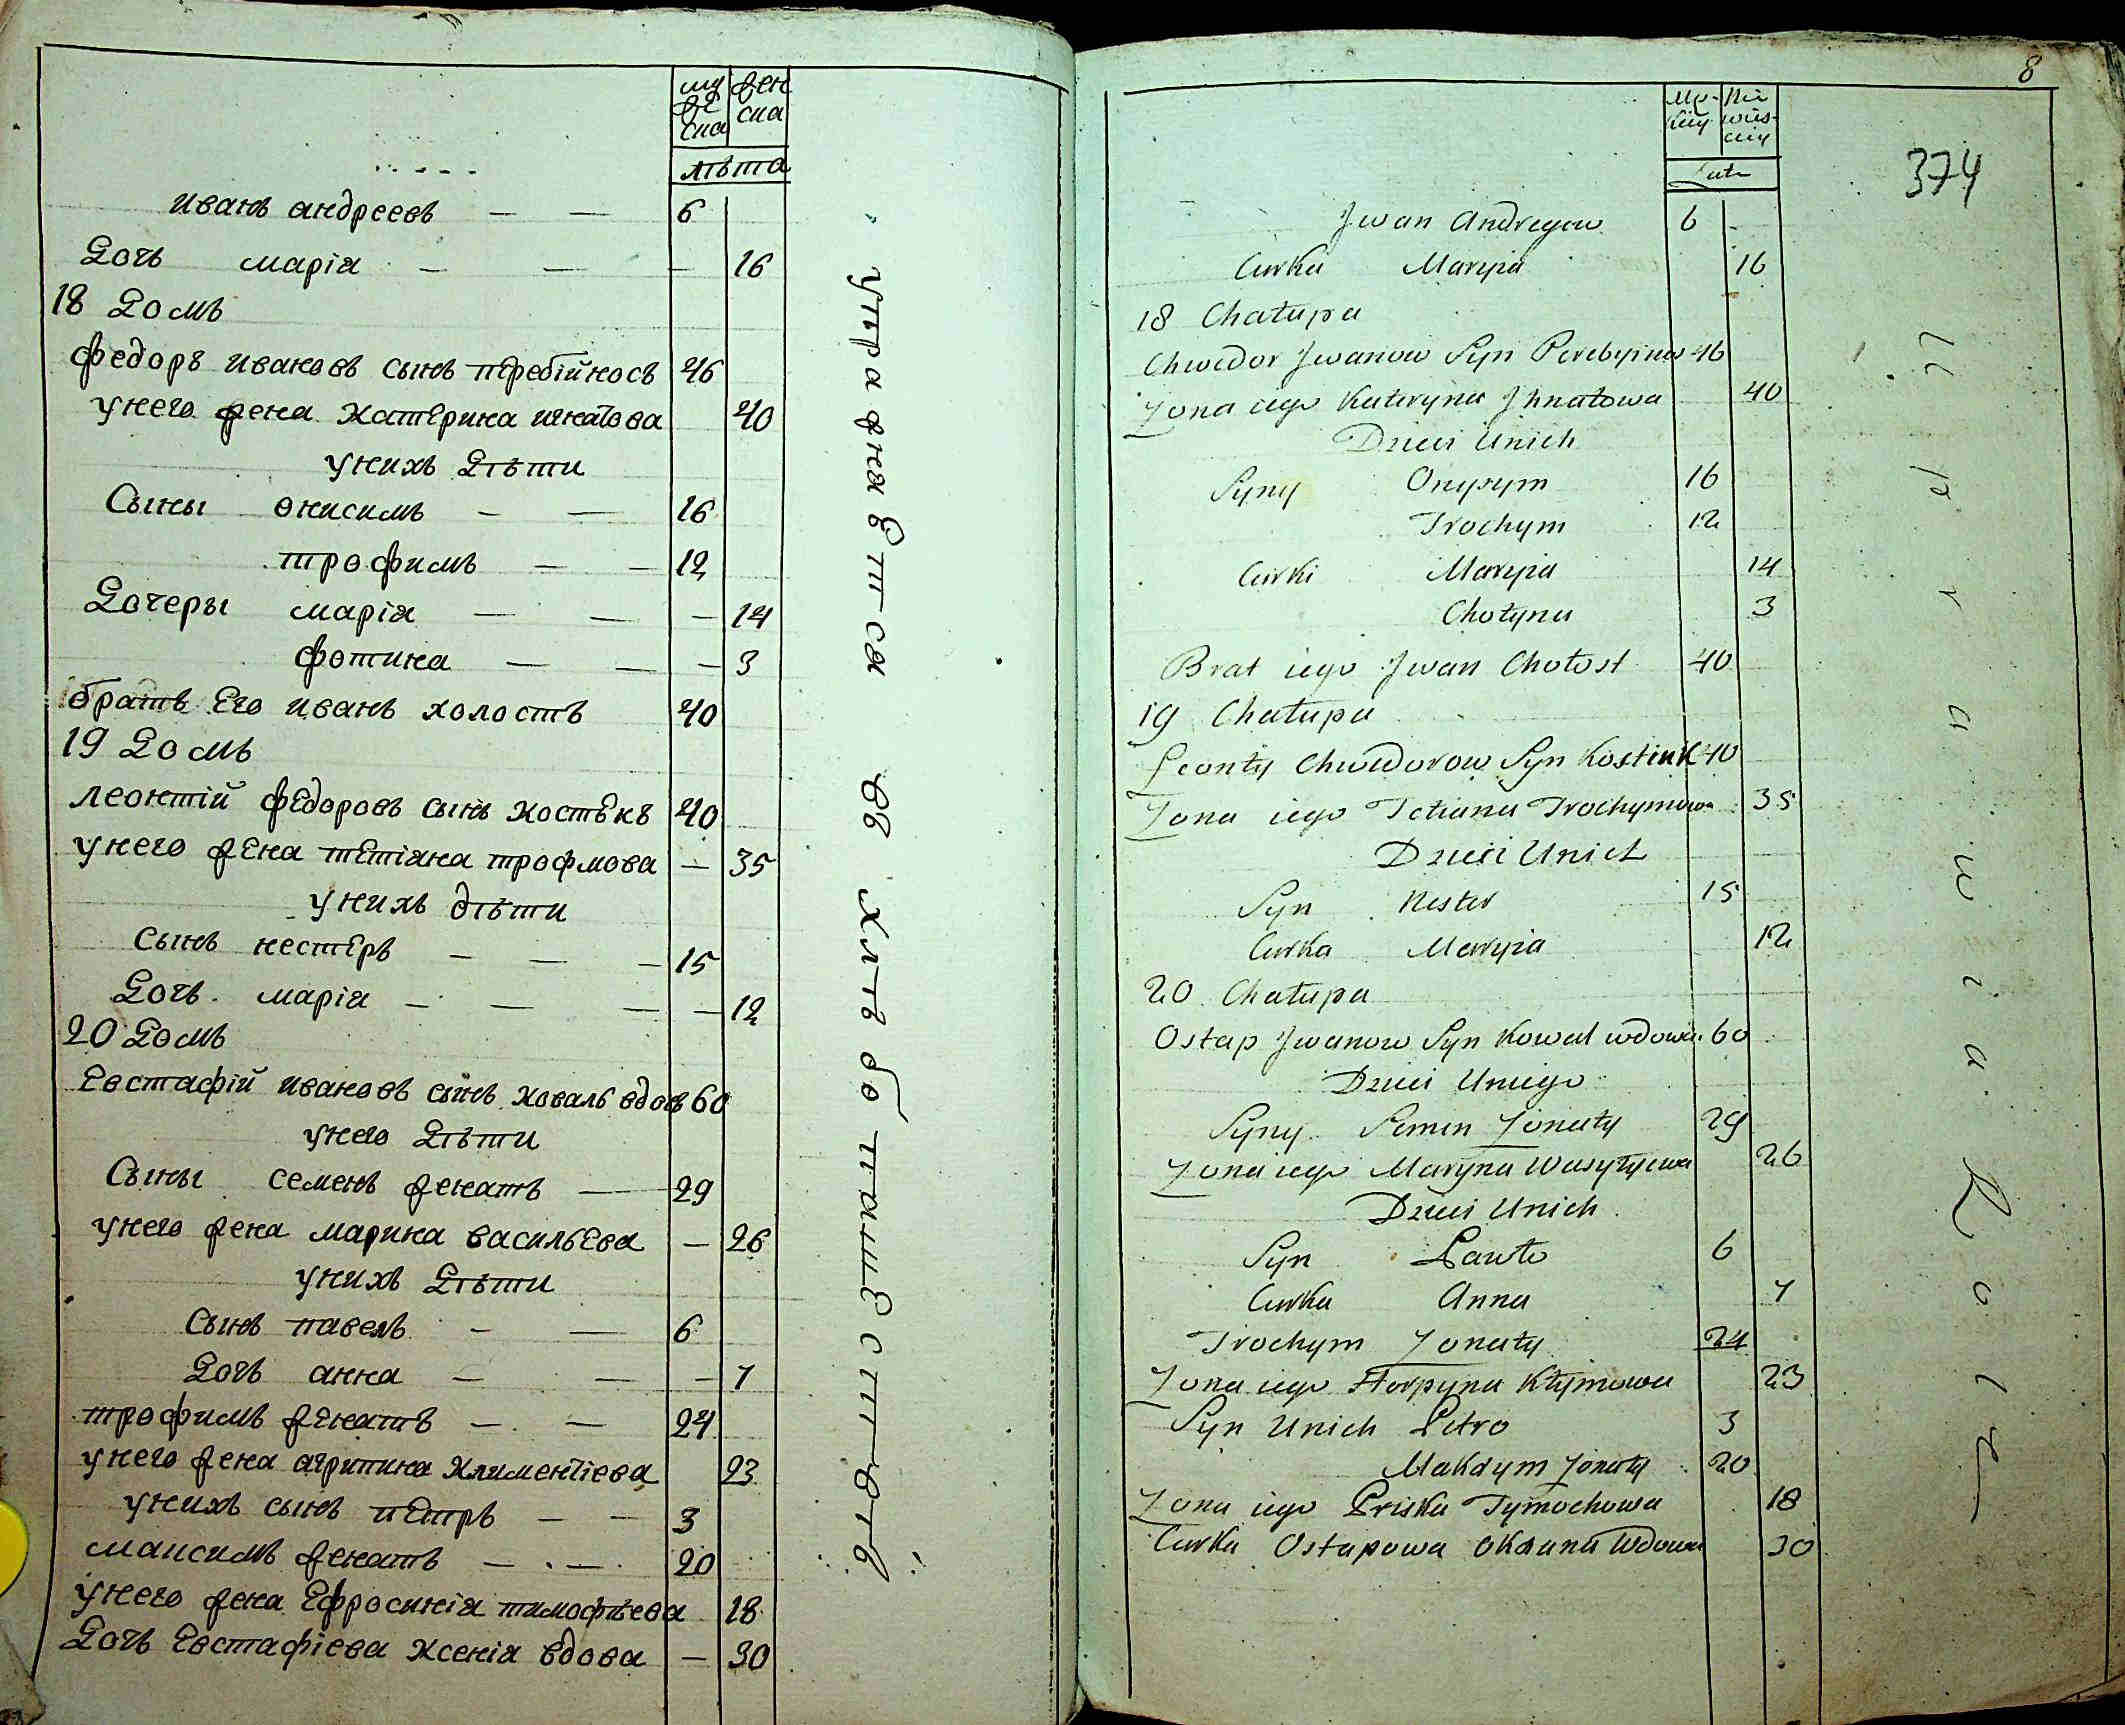 муже ска
жен ска
лѣта
иванъ андреевъ — — 6
Дочь марія — — — 16
18 Домъ
федоръ ивановъ сынъ перебійносъ 46
унего жена катерина игнатова 40
унихъ Дѣти
Сыны онисимъ — — 16
трофимъ — — 12
Дочеры марія — — — 14
фотина — — — 3
братъ Его иванъ холостъ 40
19 Домъ
леонтій федоровъ сынъ костѣкъ 40
унего жена тетіана трофмова — 35
унихъ дѣти
сынъ нестеръ — — — 15
Дочь марія — — — — 12
20 Домъ
Евстафій ивановъ сынъ коваль вдовъ 60
унего Дѣти
Сыны семенъ женатъ — 29
унего жена марина васильева — 26
унихъ Дѣти
сынъ павелъ — — 6
Дочь анна — — — 7
трофимъ женатъ — — 24
унего жена агрипина климентіева 23
унихъ сынъ петръ — — 3
максимъ женатъ — . — 20
унего жена Ефросинія тимофѣева 18
Дочь Евстафіева ксенія вдова — 30
упражняется въ хлѣбопашествѣ
8
374
Mę- skiy
Nie wies- ciy
Lata
Jwan Andreyew 6 -
Curka Maryia 16
18 Chałupa
Chwedor Jwanow Syn Perebyinos 46
Zona iego Kateryna Jhnatowa 40
Dzieci Unich
Syny Onysym 16
Trochym 12
Curki Maryia 14
Chotyna 3
Brat iego Jwan Chołost 40
19 Chałupa
Leonty Chwedorow Syn Kostiuk 40
Zona iego Tetiana Trochymowa 35
Dzieci Unich
Syn Nester 15
Curka Maryia 12
20 Chałupa
Ostap Jwanow Syn Kowal wdowec 60
Dzieci Uniego
Syny Semen Zonaty 29
Zona iego Maryna Wasylyewa 26
Dzieci Unich
Syn Pawło 6
Curka Anna 7
Trochym Zonaty 24
Zona iego Horpyna Kłymowa 23
Syn Unich Petro 3
Maksym Zonaty 20
Zona iego Priska Tymochowa 18
Curka Ostapowa Oksana Wdowa 30
Uprawia Rolę